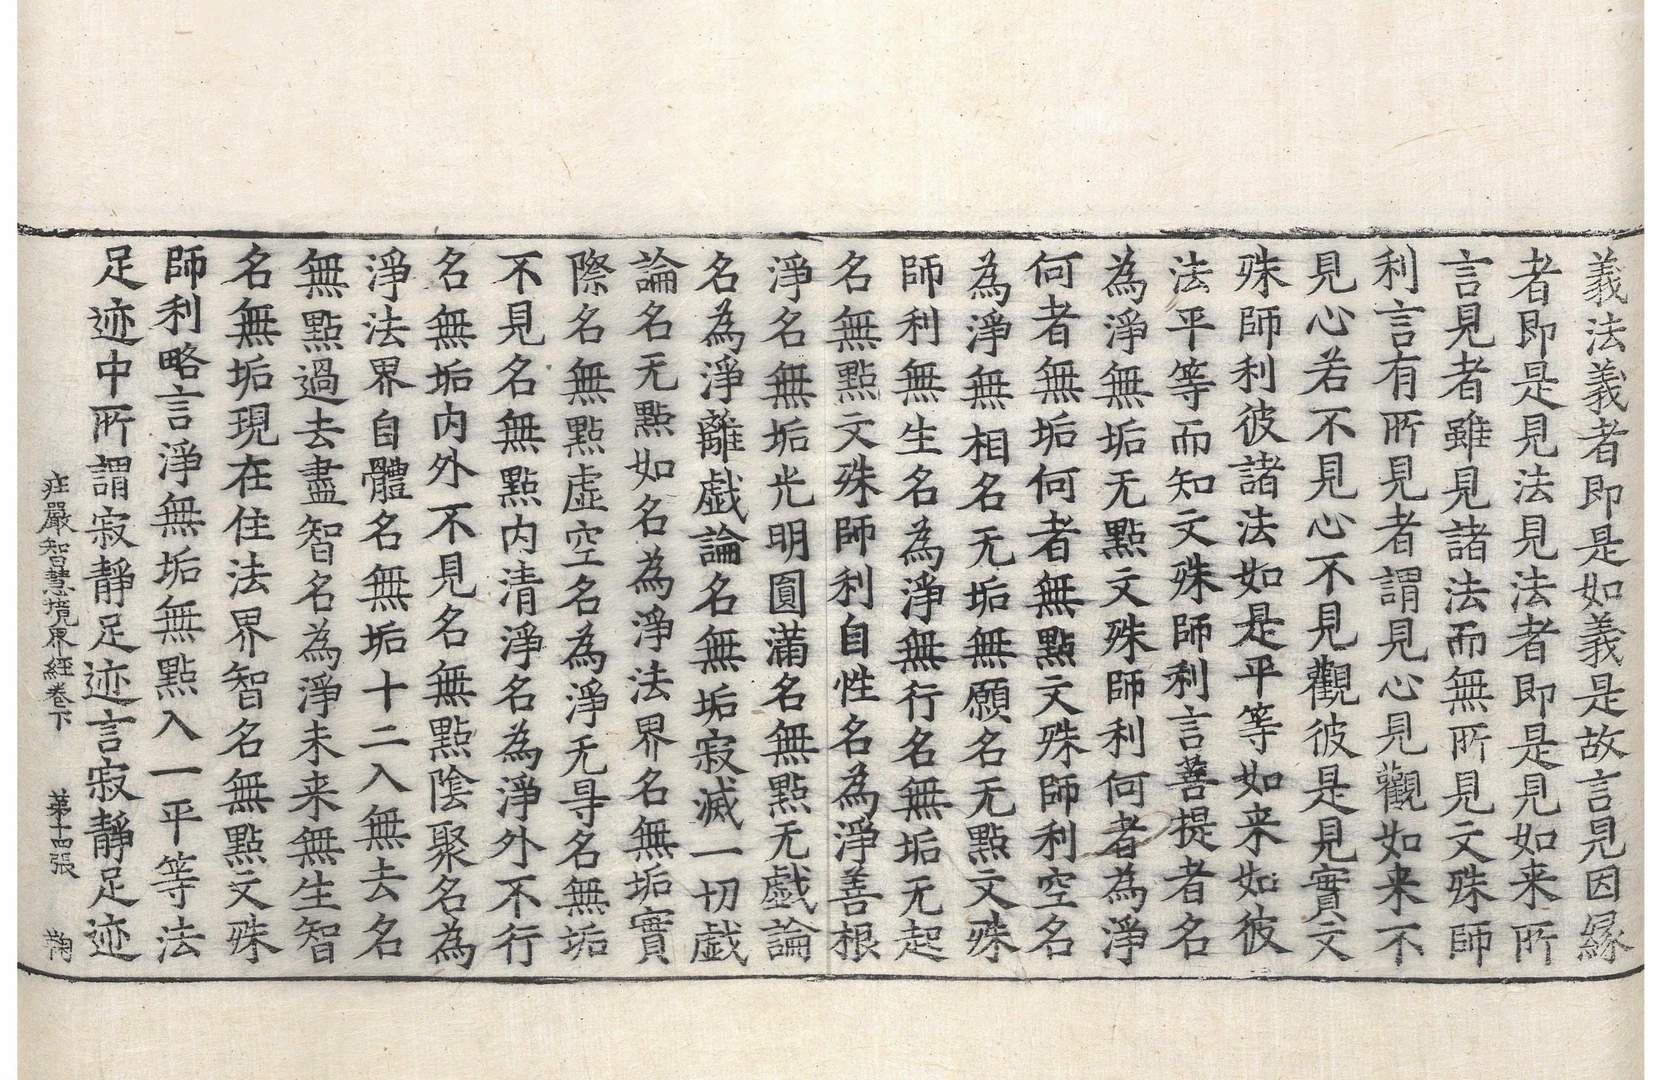 義法義義者即是如義是故言見因縁
者即是見法見法者即是見如来所
言見者雖見諸法而無所見文殊師
利言有所見者謂見心見觀如来不
見心若不見心不見觀彼是見實文
殊師利彼諸法如是平等如来如彼
法平等而知文殊師利言菩提者名
為淨無垢无點文殊師利何者為淨
何者無垢何者無點文殊師利空名
為淨無相名无垢無願名无點文殊
師利無生名為淨無行名無垢无起
名無點文殊師利自性名為淨善根
淨名無垢光明圓滿名無點无戯論
名為淨離戯論名無垢寂滅一切戯
論名无點如名為淨法界名無垢實
際名無點虛空名為淨无㝵名無垢
不見名無點内清淨名為淨外不行
名無垢内外不見名無點陰聚名為
淨法界自體名無垢十二入無去名
無點過去盡智名為淨未来無生智
名無垢現在住法界智名無點文殊
師利略言淨無垢無點入一平等法
足迹中所謂寂靜足迹言寂靜足迹
庄嚴智慧境界經卷下 第十四張 鞠